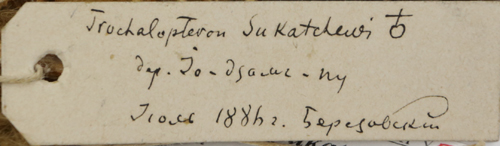 Trochalopteron Sukatchewi ♁
дер. Jo-дзамь-пу
Іюль 1886 г. Березовскій